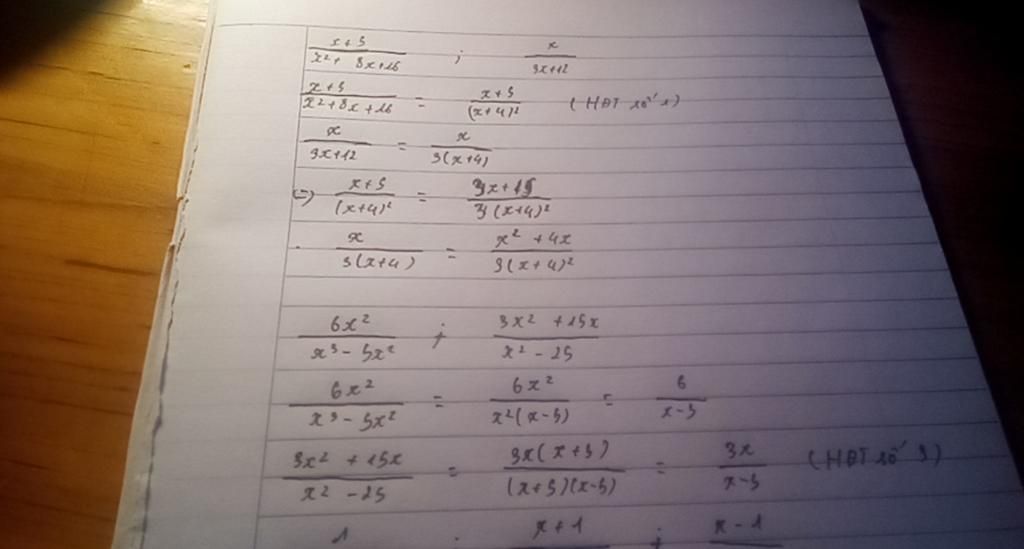 x+5/x²+8x+16 ; x/3x+12
x+5/x²+8x+16 = x+5/(x+4)² (HĐT số 1)
x/3x+12 = x/3(x+4)
=) x+5/(x+4)² = 3x+15/3(x+4)²
. x/3(x+4) = x²+4x/3(x+4)²
6x²/x³-5x² ; 3x²+15x/x²-25
6x²/x³-5x² = 6x²/x²(x-5) = 6/x-5
3x²+15x/x²-25 = 3x(x+5)/(x+5)(x-5) = 3x/x-5 (HĐT số 3)
1 ; x+1 ; x-1